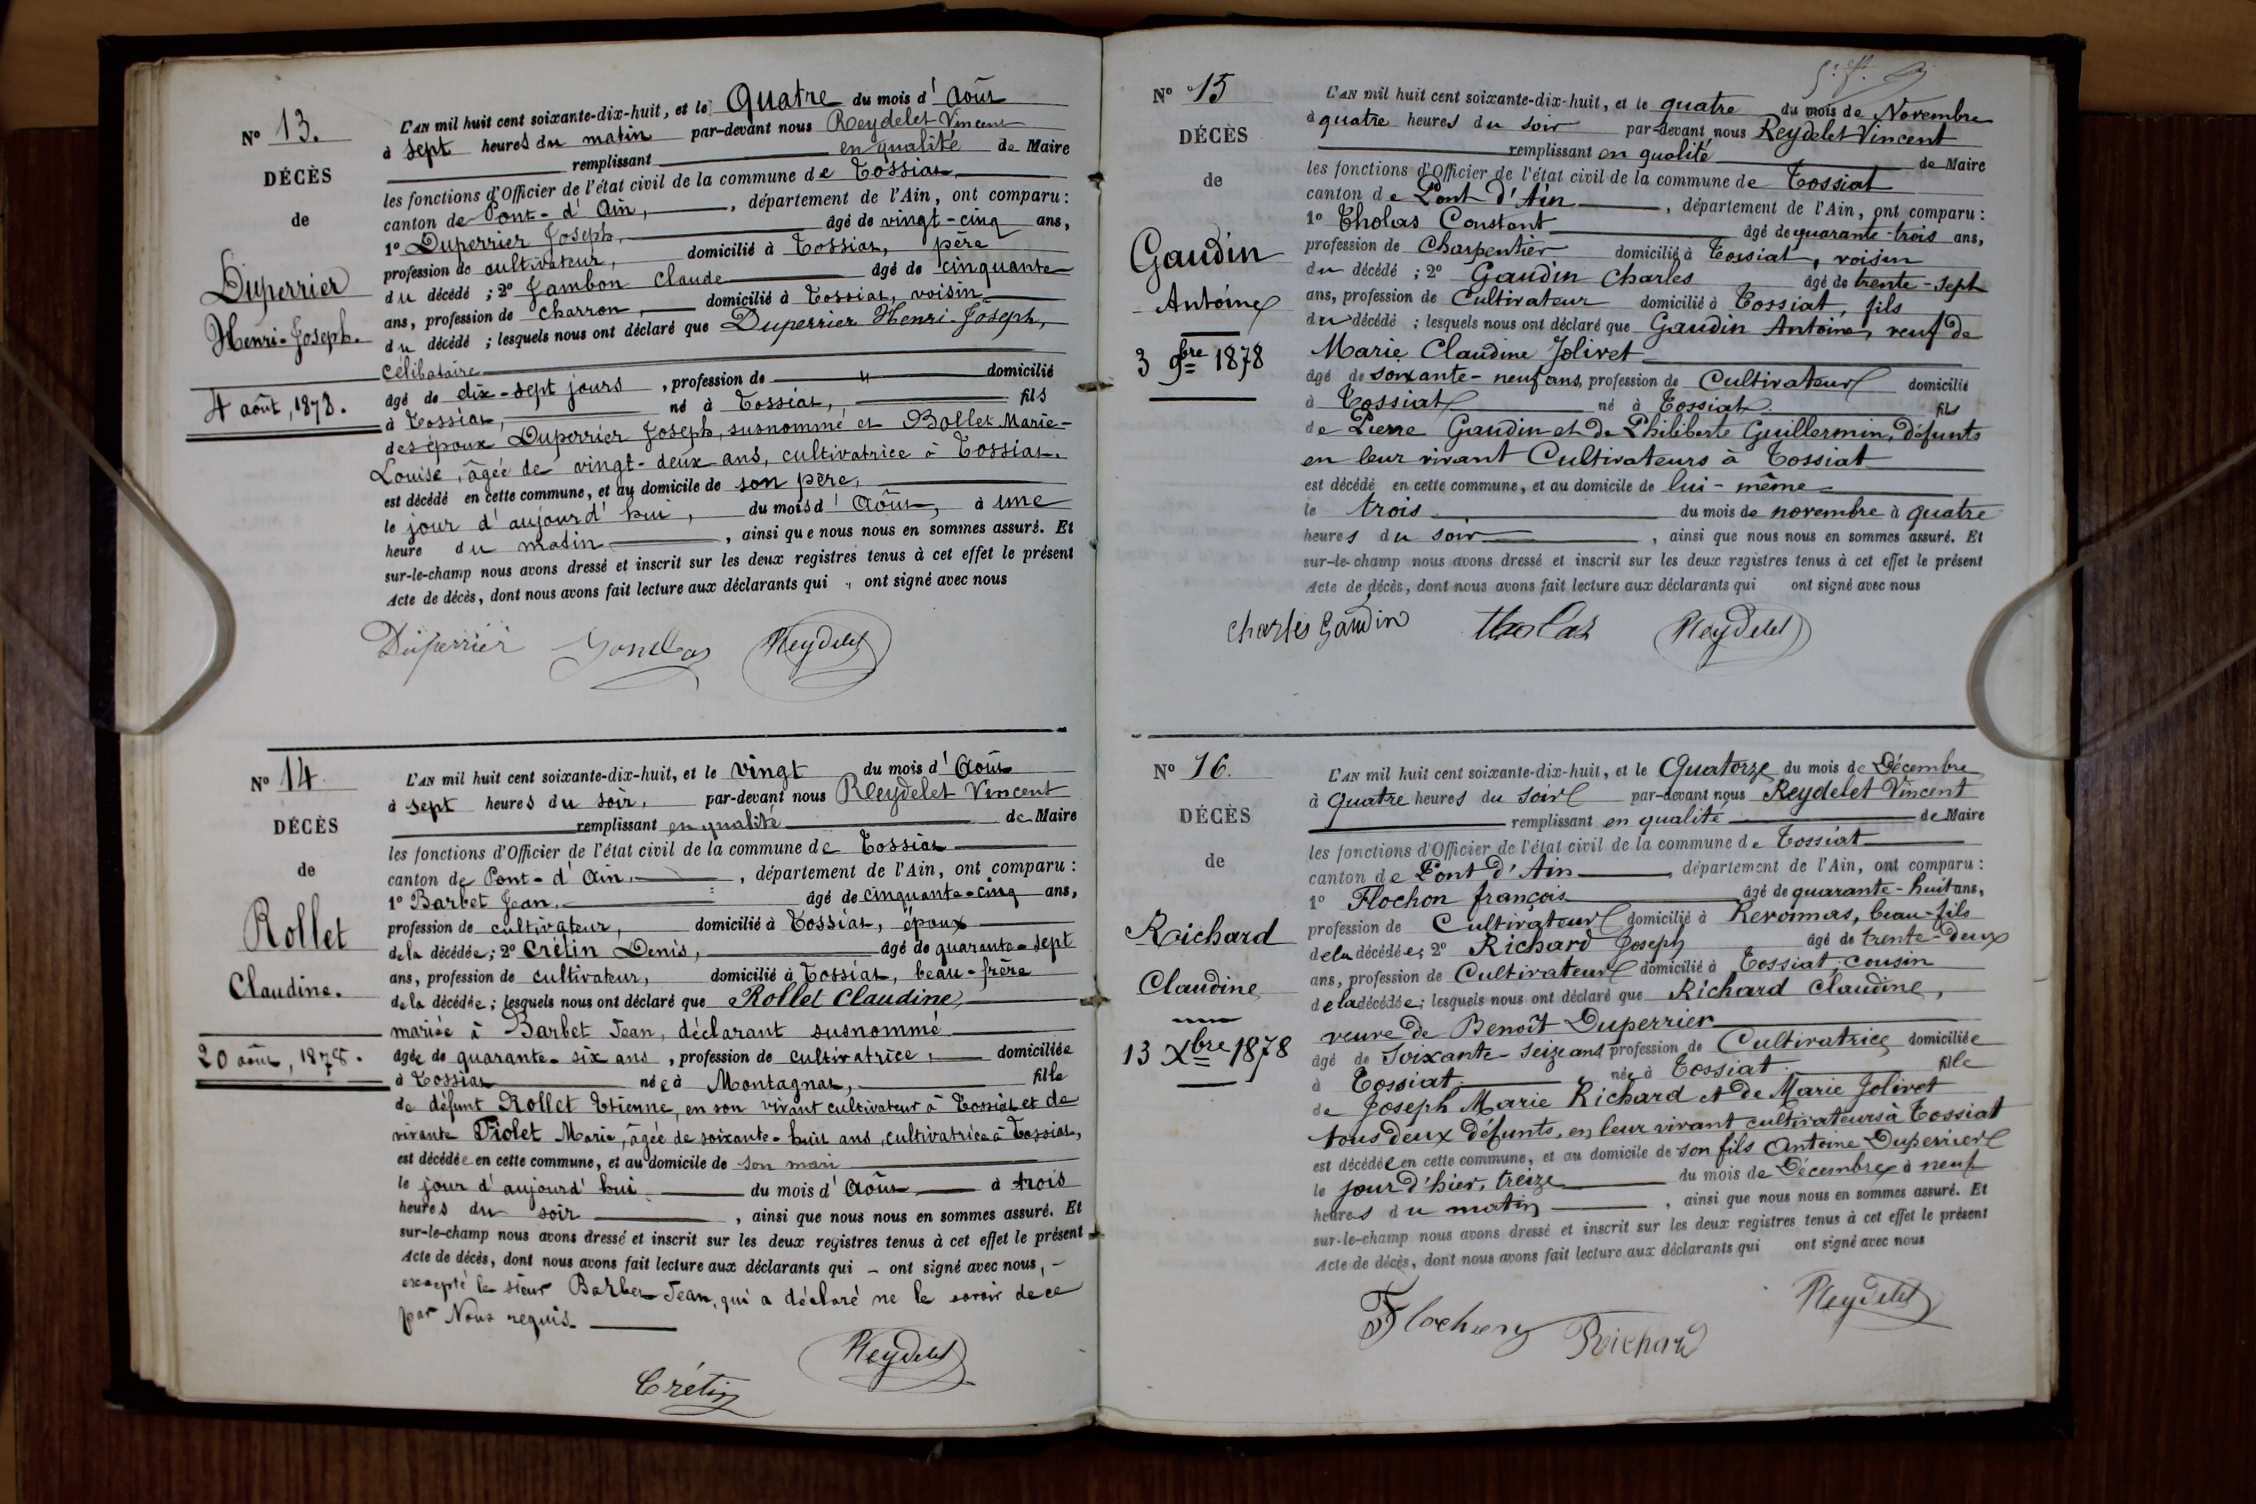 N° 13.
DÉCÈS
de
Duperrier
Henri-Joseph.
4 août, 1878.
L'AN mil huit cent soixante-dix-huit, et le Quatre du mois d'Août
à sept heures du matin par-devant nous Reydelet Vincent
remplissant en qualité de Maire
les fonctions d'Officier de l'état civil de la commune de Tossiat,
canton de Pont-d'Ain, , département de l'Ain, ont comparu :
1° Duperrier Joseph, âgé de vingt-cinq ans,
profession de cultivateur, domicilié à Tossiat, père
du décédé ; 2° Jambon Claude âgé de cinquante
ans, profession de charron, domicilié à Tossiat, voisin
du décédé ; lesquels nous ont déclaré que Duperrier Henri-Joseph,
célibataire
âgé de dix-sept jours , profession de " domicilié
à Tossiat, né à Tossiat, fils
des époux Duperrier Joseph, susnommé et Bollet Marie-
Louise, âgée de vingt-deux ans, cultivatrice à Tossiat.
est décédé en cette commune, et au domicile de son père,
le jour d'aujourd'hui, du mois d'Août, à une
heure du matin , ainsi que nous nous en sommes assuré. Et
sur-le-champ nous avons dressé et inscrit sur les deux registres tenus à cet effet le présent
Acte de décès, dont nous avons fait lecture aux déclarants qui " ont signé avec nous
Duperrier Reydelet
N° 14
DÉCÈS
de
Rollet
Claudine.
20 août, 1878.
L'AN mil huit cent soixante-dix-huit, et le vingt du mois d'Août
à sept heures du soir, par-devant nous Reydelet Vincent
remplissant en qualité de Maire
les fonctions d'Officier de l'état civil de la commune de Tossiat
canton de Pont-d'Ain, , département de l'Ain, ont comparu :
1° Barbet Jean, âgé de cinquante-cinq ans,
profession de cultivateur, domicilié à Tossiat, époux
de la décédée ; 2° Crétin Denis, âgé de quarante-sept
ans, profession de cultivateur, domicilié à Tossiat, beau-frère
de la décédée ; lesquels nous ont déclaré que Rollet Claudine,
mariée à Barbet Jean, déclarant susnommé
âgée de quarante-six ans , profession de cultivatrice, domiciliée
à Tossiat née à Montagnat, fille
de défunt Rollet Etienne, en son vivant cultivateur à Tossiat et de
vivante Piolet Marie, âgée de soixante-huit ans, cultivatrice à Tossiat,
est décédée en cette commune, et au domicile de son mari
le jour d'aujourd'hui du mois d'Août à trois
heures du soir , ainsi que nous nous en sommes assuré. Et
sur-le-champ nous avons dressé et inscrit sur les deux registres tenus à cet effet le présent
Acte de décès, dont nous avons fait lecture aux déclarants qui – ont signé avec nous, –
excepté le sieur Barbet Jean, qui a déclaré ne le savoir de ce
par Nous requis.
Crétin Reydelet
N° 15
DÉCÈS
de
Gaudin
Antoine
3 9bre 1878
L'AN mil huit cent soixante-dix-huit, et le quatre du mois de Novembre
à quatre heures du soir par-devant nous Reydelet Vincent
remplissant en qualité de Maire
les fonctions d'Officier de l'état civil de la commune de Tossiat
canton de Pont d'Ain , département de l'Ain, ont comparu :
1° Tholas Constant âgé de quarante-trois ans,
profession de Charpentier domicilié à Tossiat, voisin
du décédé ; 2° Gaudin Charles âgé de trente-sept
ans, profession de Cultivateur domicilié à Tossiat, fils
du décédé ; lesquels nous ont déclaré que Gaudin Antoine, veuf de
Marie Claudine Jolivet
âgé de soixante-neuf ans, profession de Cultivateur domicilié
à Tossiat né à Tossiat fils
de Pierre Gaudin et de Philiberte Guillermin, défunts
en leur vivant Cultivateurs à Tossiat
est décédé en cette commune, et au domicile de lui-même
le trois du mois de novembre à quatre
heures du soir , ainsi que nous nous en sommes assuré. Et
sur-le-champ nous avons dressé et inscrit sur les deux registres tenus à cet effet le présent
Acte de décès, dont nous avons fait lecture aux déclarants qui ont signé avec nous
Charles Gaudin Tholas Reydelet
N° 16.
DÉCÈS
de
Richard
Claudine
13 Xbre 1878
L'AN mil huit cent soixante-dix-huit, et le Quatorze du mois de Décembre
à Quatre heures du soir par-devant nous Reydelet Vincent
remplissant en qualité de Maire
les fonctions d'Officier de l'état civil de la commune de Tossiat
canton de Pont d'Ain , département de l'Ain, ont comparu :
1° Flochon françois âgé de quarante-huit ans,
profession de Cultivateur domicilié à Revonnas, beau-fils
de la décédée ; 2° Richard Joseph âgé de trente-deux
ans, profession de Cultivateur domicilié à Tossiat, cousin
de la décédée ; lesquels nous ont déclaré que Richard Claudine,
veuve de Benoît Duperrier
âgé de Soixante-seize ans profession de Cultivatrice domiciliée
à Tossiat née à Tossiat fille
de Joseph Marie Richard et de Marie Jolivet
tous deux défunts, en leur vivant cultivateurs à Tossiat
est décédée en cette commune, et au domicile de son fils Antoine Duperrier
le jour d'hier, treize du mois de Décembre à neuf
heures du matin , ainsi que nous nous en sommes assuré. Et
sur-le-champ nous avons dressé et inscrit sur les deux registres tenus à cet effet le présent
Acte de décès, dont nous avons fait lecture aux déclarants qui ont signé avec nous
Flochon Richard Reydelet